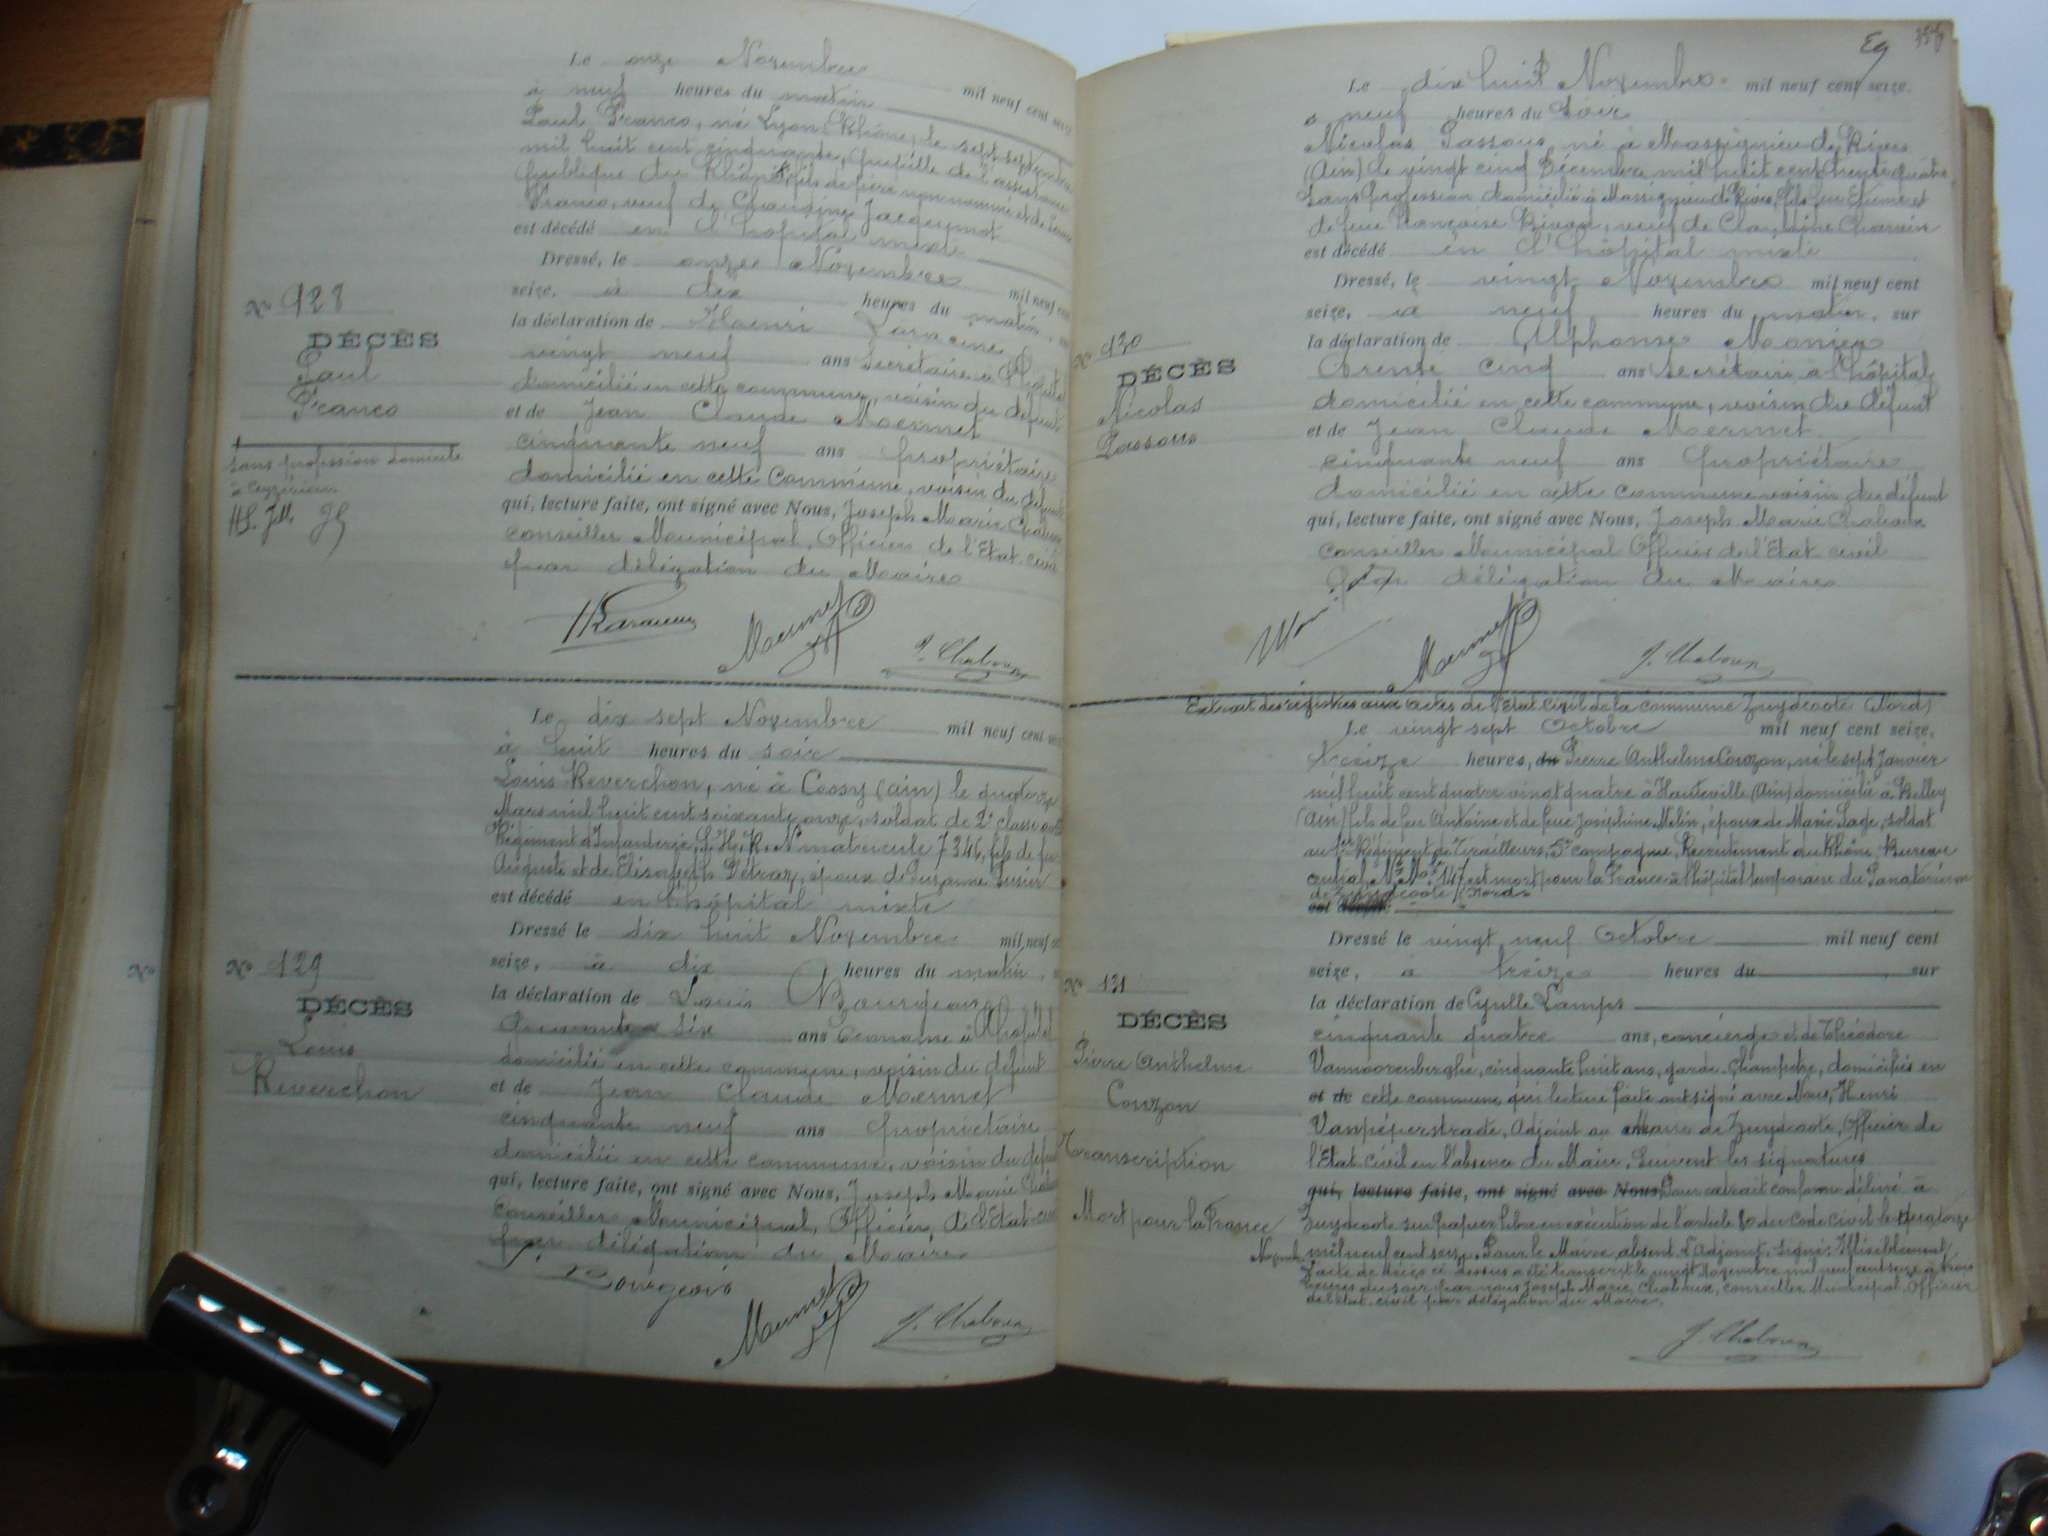 Le onze Novembre mil neuf cent seize
à neuf heures du matin
Paul Franco, né Lyon Rhône, le sept septembre
mil huit cent cinquante, pupille de l'assistance
publique du Rhône, fils de père non nommé et de
Franco, veuf de Claudine Jacquemot
est décédé en l'hôpital mixte
Dressé, le onze Novembre mil neuf cent
seize, à dix heures du matin,
la déclaration de Henri
vingt neuf ans Secrétaire à l'hôpital
domicilié en cette commune, voisin du défunt
et de Jean Claude Mermet
cinquante neuf ans propriétaire
domicilié en cette commune, voisin du défunt
qui, lecture faite, ont signé avec Nous, Joseph Marie Chaboux
conseiller Municipal, Officier de l'Etat-civil
par délégation du Maire
Mermet
J. Chaboux
No 128
DÉCÈS
Paul
Franco
sans profession domicilié
à Ceyzérieu
Le dix sept Novembre mil neuf cent seize
à huit heures du soir
Louis Reverchon, né à Cessy (ain) le quatorze
Mars mil huit cent soixante onze, soldat de 2e classe au
Régiment d'Infanterie, No matricule 7346, fils de feu
Auguste et de Elisabeth Détraz, époux de Suzanne
est décédé en l'hôpital mixte
Dressé le dix huit Novembre mil neuf cent
seize, à dix heures du matin,
la déclaration de Louis Bourgeois
six ans Econome à l'hôpital
domicilié en cette commune, voisin du défunt
et de Jean Claude Mermet
cinquante neuf ans propriétaire
domicilié en cette commune, voisin du défunt
qui, lecture faite, ont signé avec Nous, Joseph Marie Chaboux
Conseiller Municipal, Officier de l'Etat-civil
par délégation du Maire
L. Bourgeois
Mermet
J. Chaboux
No
No 129
DÉCÈS
Louis
Reverchon
Le dix huit Novembre mil neuf cent seize.
à neuf heures du Soir
Nicolas Passous, né à Massignieu de Rives
(Ain) le vingt cinq Décembre mil huit cent trente quatre
Sans profession domicilié à Massignieu de Rives, fils feu et
de feue Françoise veuf de Claudine
est décédé en l'hôpital mixte
Dressé, le vingt Novembre mil neuf cent
seize, à neuf heures du matin, sur
la déclaration de Alphonse Monier
trente cinq ans Secrétaire à l'hôpital
domicilié en cette commune, voisin du défunt
et de Jean Claude Mermet
cinquante neuf ans propriétaire
domicilié en cette commune voisin du défunt
qui, lecture faite, ont signé avec Nous, Joseph Marie Chaboux
conseiller Municipal Officier de l'Etat-civil
par délégation du Maire
Mermet
J. Chaboux
No 130
DÉCÈS
Nicolas
Passous
Extrait des registres aux actes de l'Etat Civil de la commune Zuydcoote (Nord)
Le vingt sept Octobre mil neuf cent seize,
treize heures, du Pierre Anthelme Couzon, né le sept Janvier
mil huit cent quatre vingt quatre à Hauteville (Ain) domicilié à Belley
(Ain) fils de feu Antoine et de feue Joséphine Melin, époux de Marie Sage, soldat
au 1er Régiment de Tirailleurs, 5e compagnie, Recrutement du Rhône, Bureau
central No Mle 147 est mort pour la France à l'hôpital temporaire du Sanatorium
de Zuydcoote (Nord)
est décédé
Dressé le vingt neuf Octobre mil neuf cent
seize, à treize heures du sur
la déclaration de Cyrille Lamps
cinquante quatre ans, concierge et de Théodore
Vanmoorenberghe, cinquante huit ans, garde champêtre, domiciliés en
et de cette commune, qui lecture faite ont signé avec Nous, Henri
Vanpéperstraete, Adjoint au Maire de Zuydcoote, Officier de
l'Etat civil en l'absence du Maire, Suivent les signatures
qui, lecture faite, ont signé avec Nous Pour extrait conforme délivré à
Zuydcoote sur papier libre en exécution de l'article 80 du Code civil le quatorze
Novembre mil neuf cent seize. Pour le Maire absent, l'Adjoint, Signé: Illisiblement
L'acte de décès ci dessus a été transcrit le vingt Novembre mil neuf cent seize à trois
heures du soir par nous Joseph Marie Chaboux, conseiller Municipal Officier
de l'état-civil par délégation du Maire.
J. Chaboux
No 131
DÉCÈS
Pierre Anthelme
Couzon
Transcription
Mort pour la France